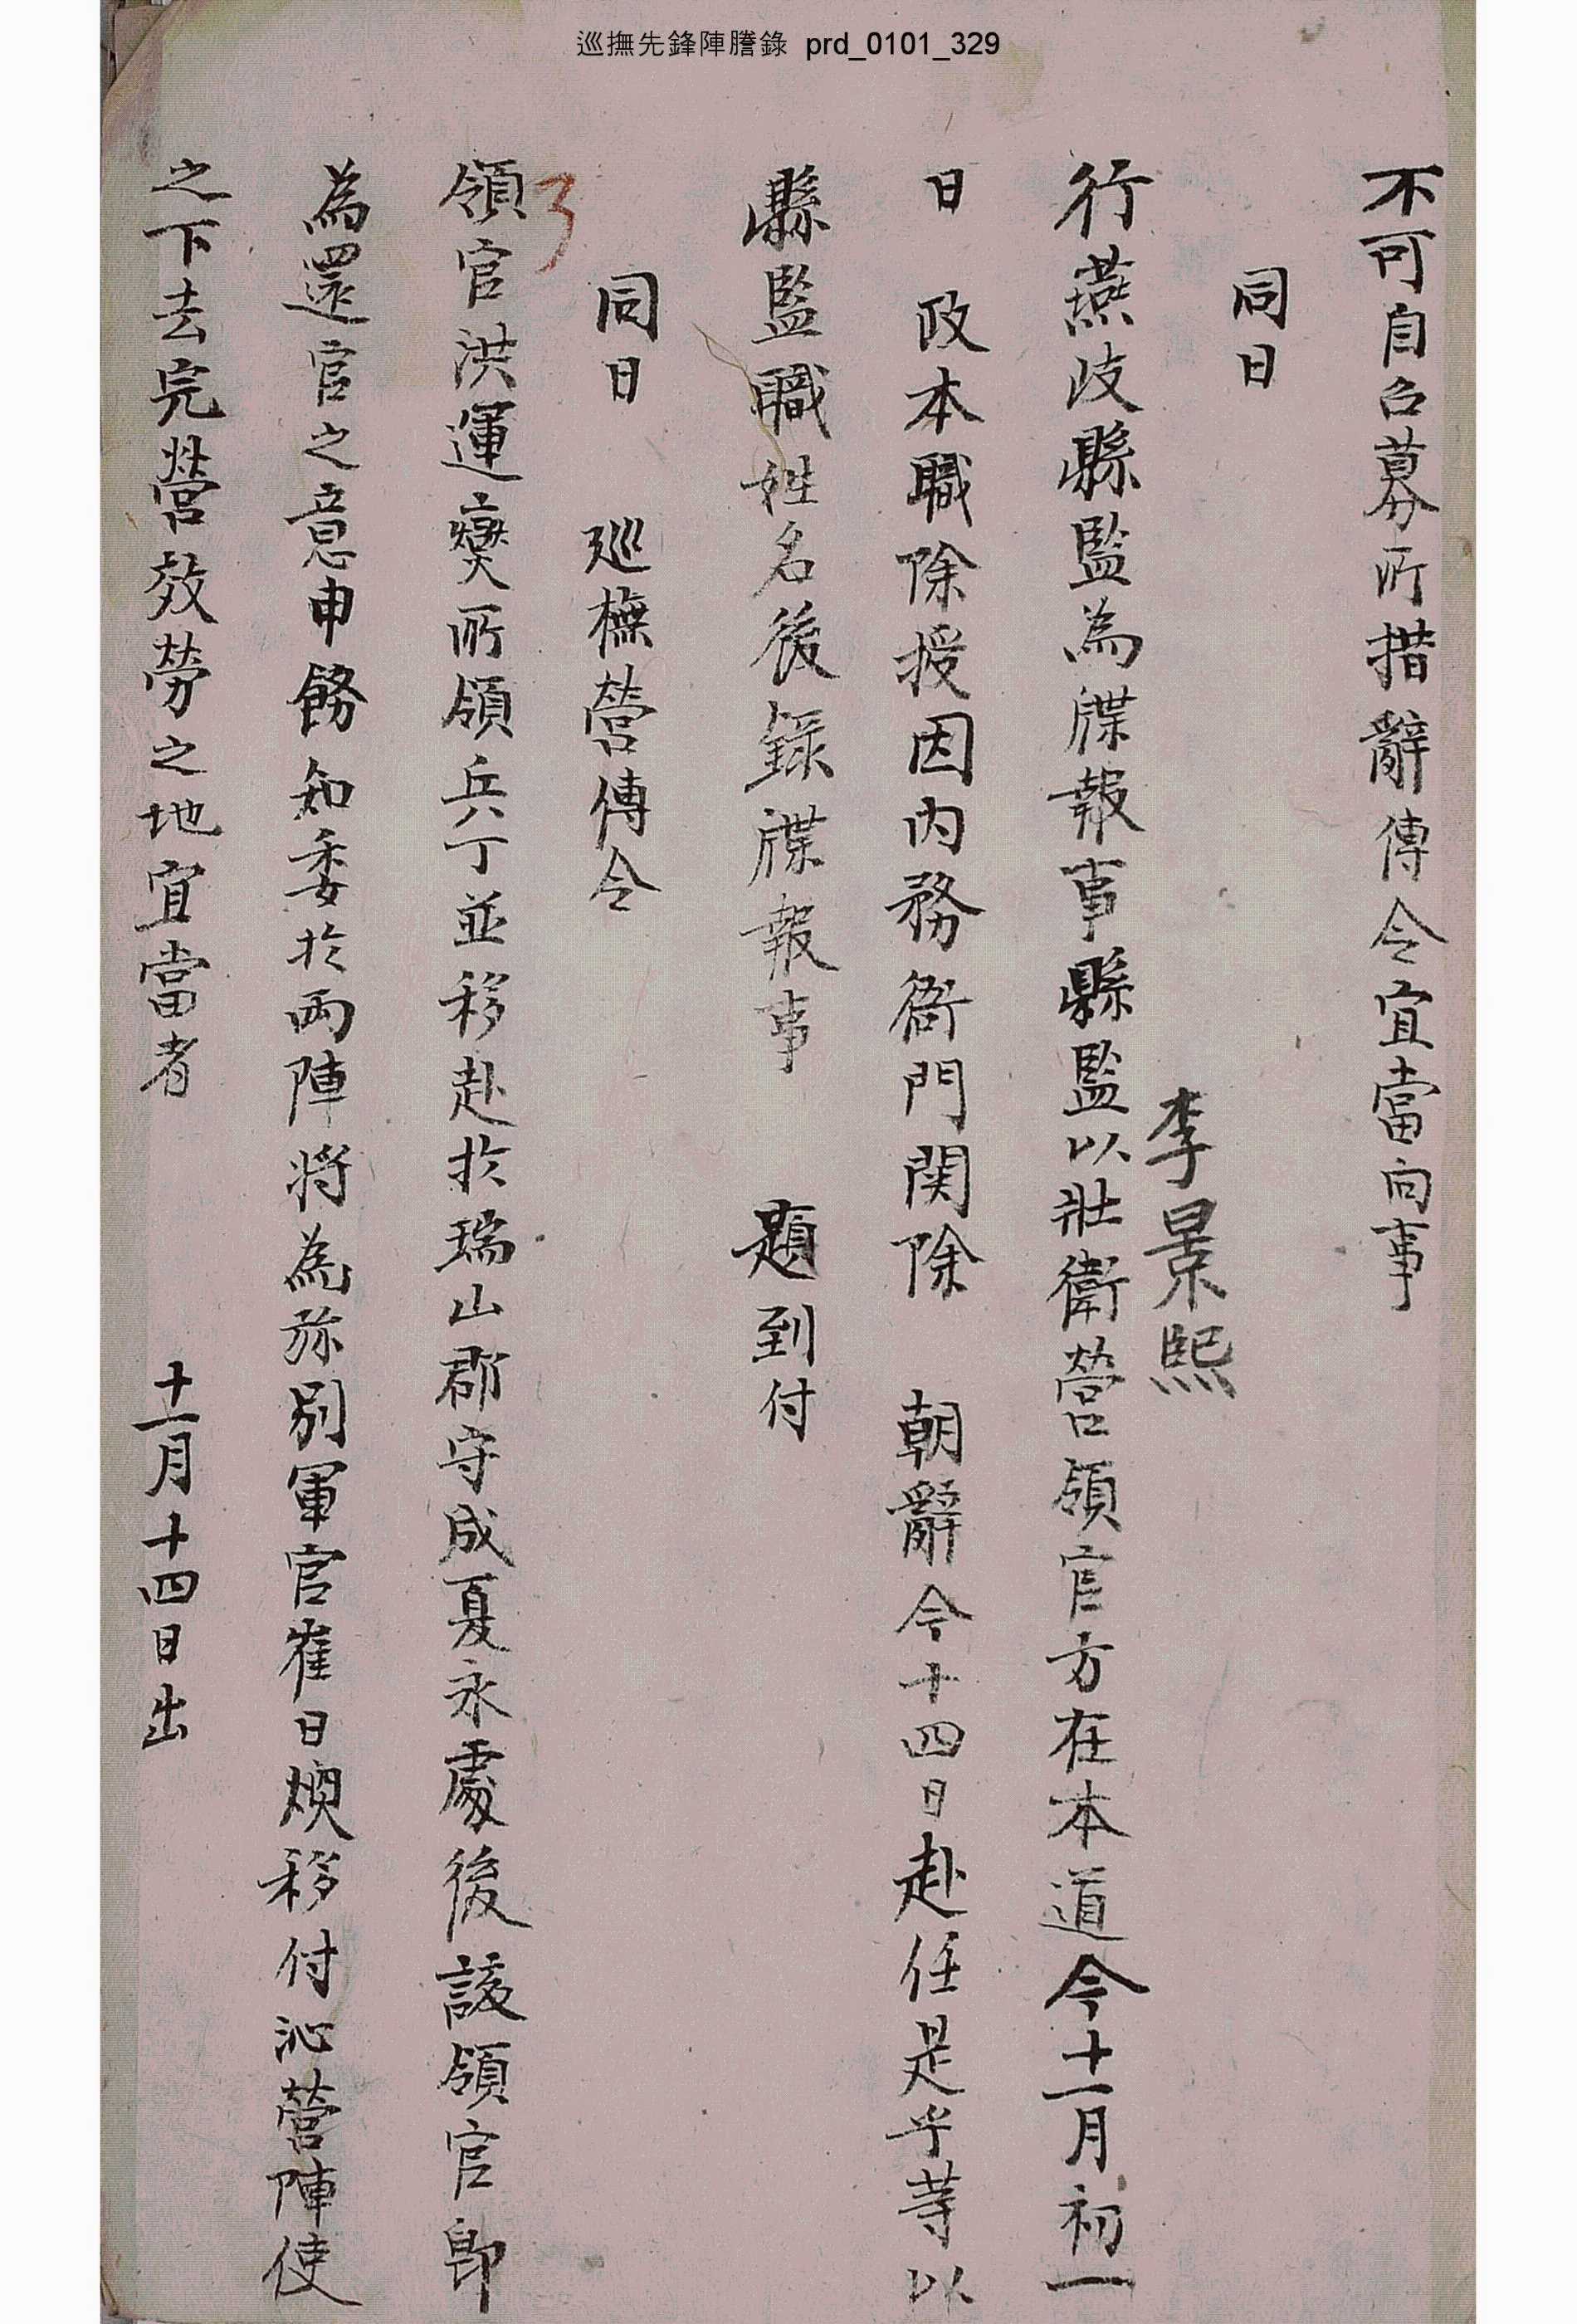 巡撫先鋒陣謄錄 prd_0101_329
不可自召募所措辭傳令宜當向事
同日
行燕歧縣監為牒報事縣監以壯衛營領官方在本道今十一月初一
李景熙
日 政本職除授因內務衙門関除 朝辭今十四日赴任是乎等以
縣監職姓名後錄牒報事 題到付
同日 巡撫營傳令
領官洪運燮所領兵丁並移赴於瑞山郡守成夏永處後該領官即
為還官之意申飭知委於兩陣將為旀別軍官崔日煥移付沁營陣使
之下去完營效勞之地宜當者 十一月十四日出